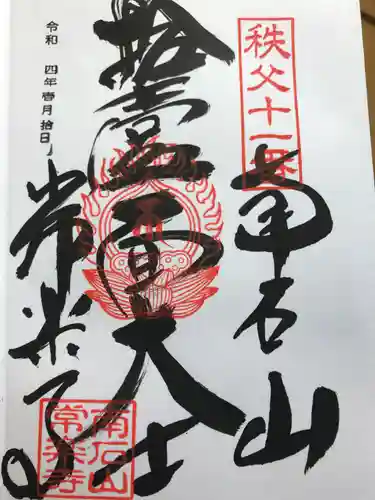 秩父十一番
南石山
拾壹番
大士
常楽寺
令和 四年壱月拾日
南石山
常楽寺